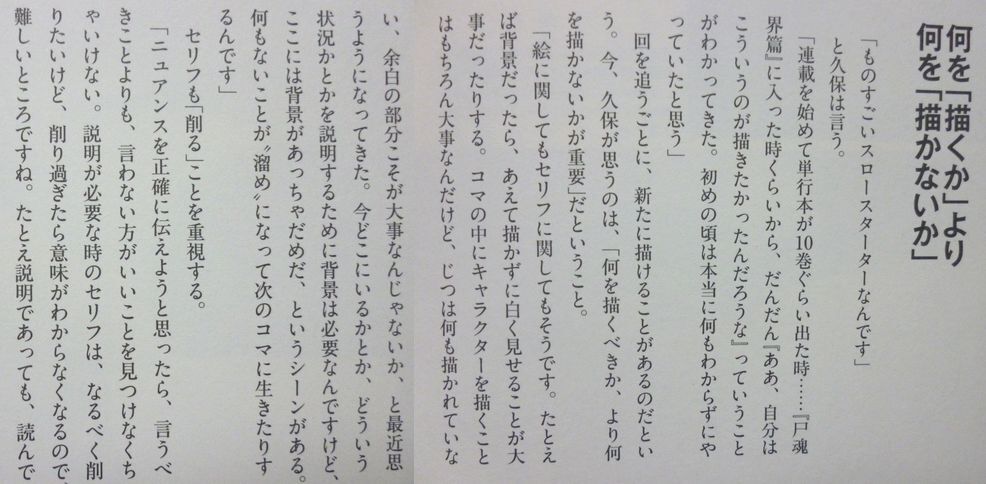 何を「描くか」より
何を「描かないか」
「ものすごいスロースターターなんです」
と久保は言う。
「連載を始めて単行本が10巻ぐらい出た時……『尸魂
界篇』に入った時くらいから、だんだん『ああ、自分は
こういうのが描きたかったんだろうな』っていうこと
がわかってきた。初めの頃は本当に何もわからずにや
っていたと思う」
回を追うごとに、新たに描けることがあるのだとい
う。今、久保が思うのは、「何を描くべきか、より何
を描かないかが重要」だということ。
「絵に関してもセリフに関してもそうです。たとえ
ば背景だったら、あえて描かずに白く見せることが大
事だったりする。コマの中にキャラクターを描くこと
はもちろん大事なんだけど、じつは何も描かれていな
い、余白の部分こそが大事なんじゃないか、と最近思
うようになってきた。今どこにいるかとか、どういう
状況かとかを説明するために背景は必要なんですけど、
ここには背景があっちゃだめだ、というシーンがある。
何もないことが〝溜め〟になって次のコマに生きたりす
るんです」
セリフも「削る」ことを重視する。
「ニュアンスを正確に伝えようと思ったら、言うべ
きことよりも、言わない方がいいことを見つけなくち
ゃいけない。説明が必要な時のセリフは、なるべく削
りたいけど、削り過ぎたら意味がわからなくなるので、
難しいところですね。たとえ説明であっても、読んで